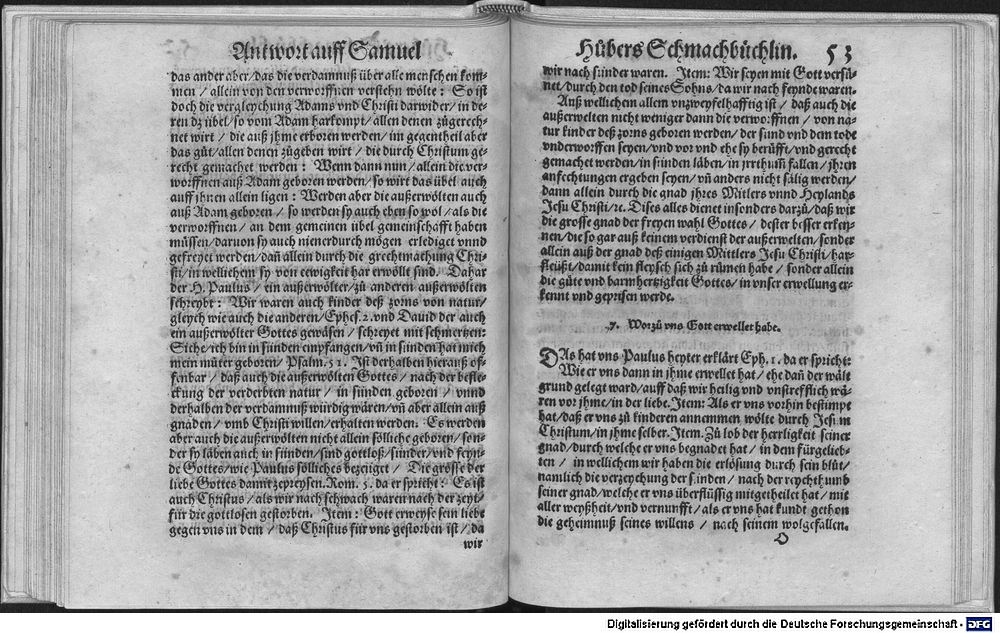 Antwort auff Samuel
das ander aber / das die verdamnuß über alle menschen kom-
men / allein von den verworffnen verstehn wölte: So ist
doch die vergleychung Adams vnd Christi darwider / in de-
ren dz übel / so vom Adam harkompt / allen denen zůgerech-
net wirt / die auß jhme erboren werden / im gegentheil aber
das gůt / allen denen zůgeben wirt / die durch Christum ge-
recht gemachet werden: Wenn dann nun / allein die ver-
worffnen auß Adam geboren werden / so wirt das übel auch
auff jhnen allein ligen: Werden aber die außerwölten auch
auß Adam geboren / so werden sy auch eben so wol / als die
verworffnen / an dem gemeinen übel gemeinschafft haben
müssen / daruon sy auch nienerdurch mögen erlediget vnnd
gefreyet werden / dañ allein durch die grechtmachung Chri-
sti / in wellichem sy von eewigkeit har erwölt sind. Dahar
der H. Paulus / ein außerwölter / zů anderen außerwölten
schreybt: Wir waren auch kinder deß zorns von natur /
gleych wie auch die anderen / Ephes. 2. vnd Dauid der auch
ein außerwölter Gottes gewäsen / schreyet mit schmertzen:
Sihe / ich bin in sünden empfangen / vñ in sünden hat mich
mein můter geboren / Psalm. 51. Ist derhalben hierauß of-
fenbar / daß auch die außerwölten Gottes / nach der befle-
ckung der verderbten natur / in sünden geboren / vnnd
derhalben der verdamnuß würdig wären / vñ aber allein auß
gnaden / vmb Christi willen / erhalten werden: Es werden
aber auch die außerwölten nicht allein sölliche geboren / son-
der sy läben auch in sünden / sind gottloß / sünder / vnd feyn-
de Gottes / wie Paulus sölliches bezeüget / Die grösse der
liebe Gottes damit zepreysen. Rom. 5. da er spricht: Es ist
auch Christus / als wir nach schwach waren nach der zeyt /
für die gottlosen gestorben. Item: Gott erweyse sein liebe
gegen vns in dem / daß Christus für vns gestorben ist / da
wir
Hůbers Schmachbüchlin. 53
wir nach sünder waren. Item: Wir seyen mit Gott versü-
net / durch den tod seines Sohns / da wir nach feynde waren.
Auß wellichem allem vnzweyfelhafftig ist / daß auch die
außerwelten nicht weniger dann die verworffnen / von na-
tur kinder deß zorns geboren werden / der sünd vnd dem tode
vnderworffen seyen / vnd vor vnd ehe sy berüfft / vnd gerecht
gemachet werden / in sünden läben / in jrrthum̃ fallen / jhren
anfechtungen ergeben seyen / vñ anders nicht sälig werden /
dann allein durch die gnad jhres Mitlers vnnd Heylands
Jesu Christi / ꝛc. Dises alles dienet insonders darzů / daß wir
die grosse gnad der freyen wahl Gottes / dester besser erken-
nen / die so gar auß keinem verdienst der außerwelten / sonder
allein auß der gnad deß einigen Mittlers Jesu Christi / har-
fleüßt / damit kein fleysch sich zů rümen habe / sonder allein
die güte vnd barmhertzigkeit Gottes / in vnser erwellung er-
kennt vnd geprisen werde.
7. Worzů vns Gott erwellet habe.
DAs hat vns Paulus heyter erklärt Eph. 1. da er spricht:
Wie er vns dann in jhme erwellet hat / ehe dañ der wält
grund gelegt ward / auff daß wir heilig vnd vnstrefflich wä-
ren vor jhme / in der liebe. Item: Als er vns vorhin bestimpt
hat / daß er vns zů kinderen annemmen wölte durch Jesum
Christum / in jhme selber. Item. Zů lob der herrligkeit seiner
gnad / durch welche er vns begnadet hat / in dem fürgelieb-
ten / in wellichem wir haben die erlösung durch sein blůt /
namlich die verzeychung der sünden / nach der reychthumb
seiner gnad / welche er vns überflüssig mitgetheilet hat / mit
aller weyßheit / vnd vernunfft / als er vns hat kundt gethon
die geheimnuß seines willens / nach seinem wolgefallen.
O
Digitalisierung gefördert durch die Deutsche Forschungsgemeinschaft - DFG